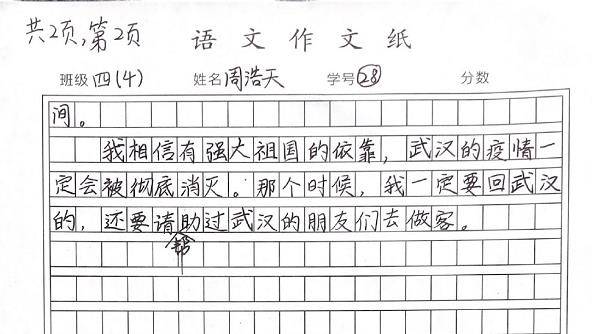 共2页,第2页 语文作文纸
班级 四(4) 姓名 周浩天 学号 28 分数
间。
我相信有强大祖国的依靠,武汉的疫情一
定会被彻底消灭。那个时候,我一定要回武汉
的,还要请帮助过武汉的朋友们去做客。